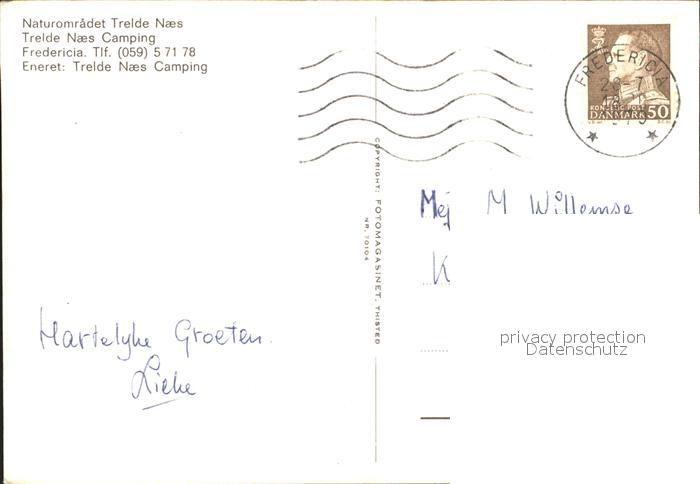 Naturområdet Trelde Næs
Trelde Næs Camping
Fredericia. Tlf. (059) 5 71 78
Eneret: Trelde Næs Camping
COPYRIGHT: FOTOMAGASINET, THISTED
NR. 70104
FREDERICIA
KONGELIG POST
DANMARK 50
Mej M Willemse
K
Hartelyke Groeten.
Lieke
privacy protection
Datenschutz